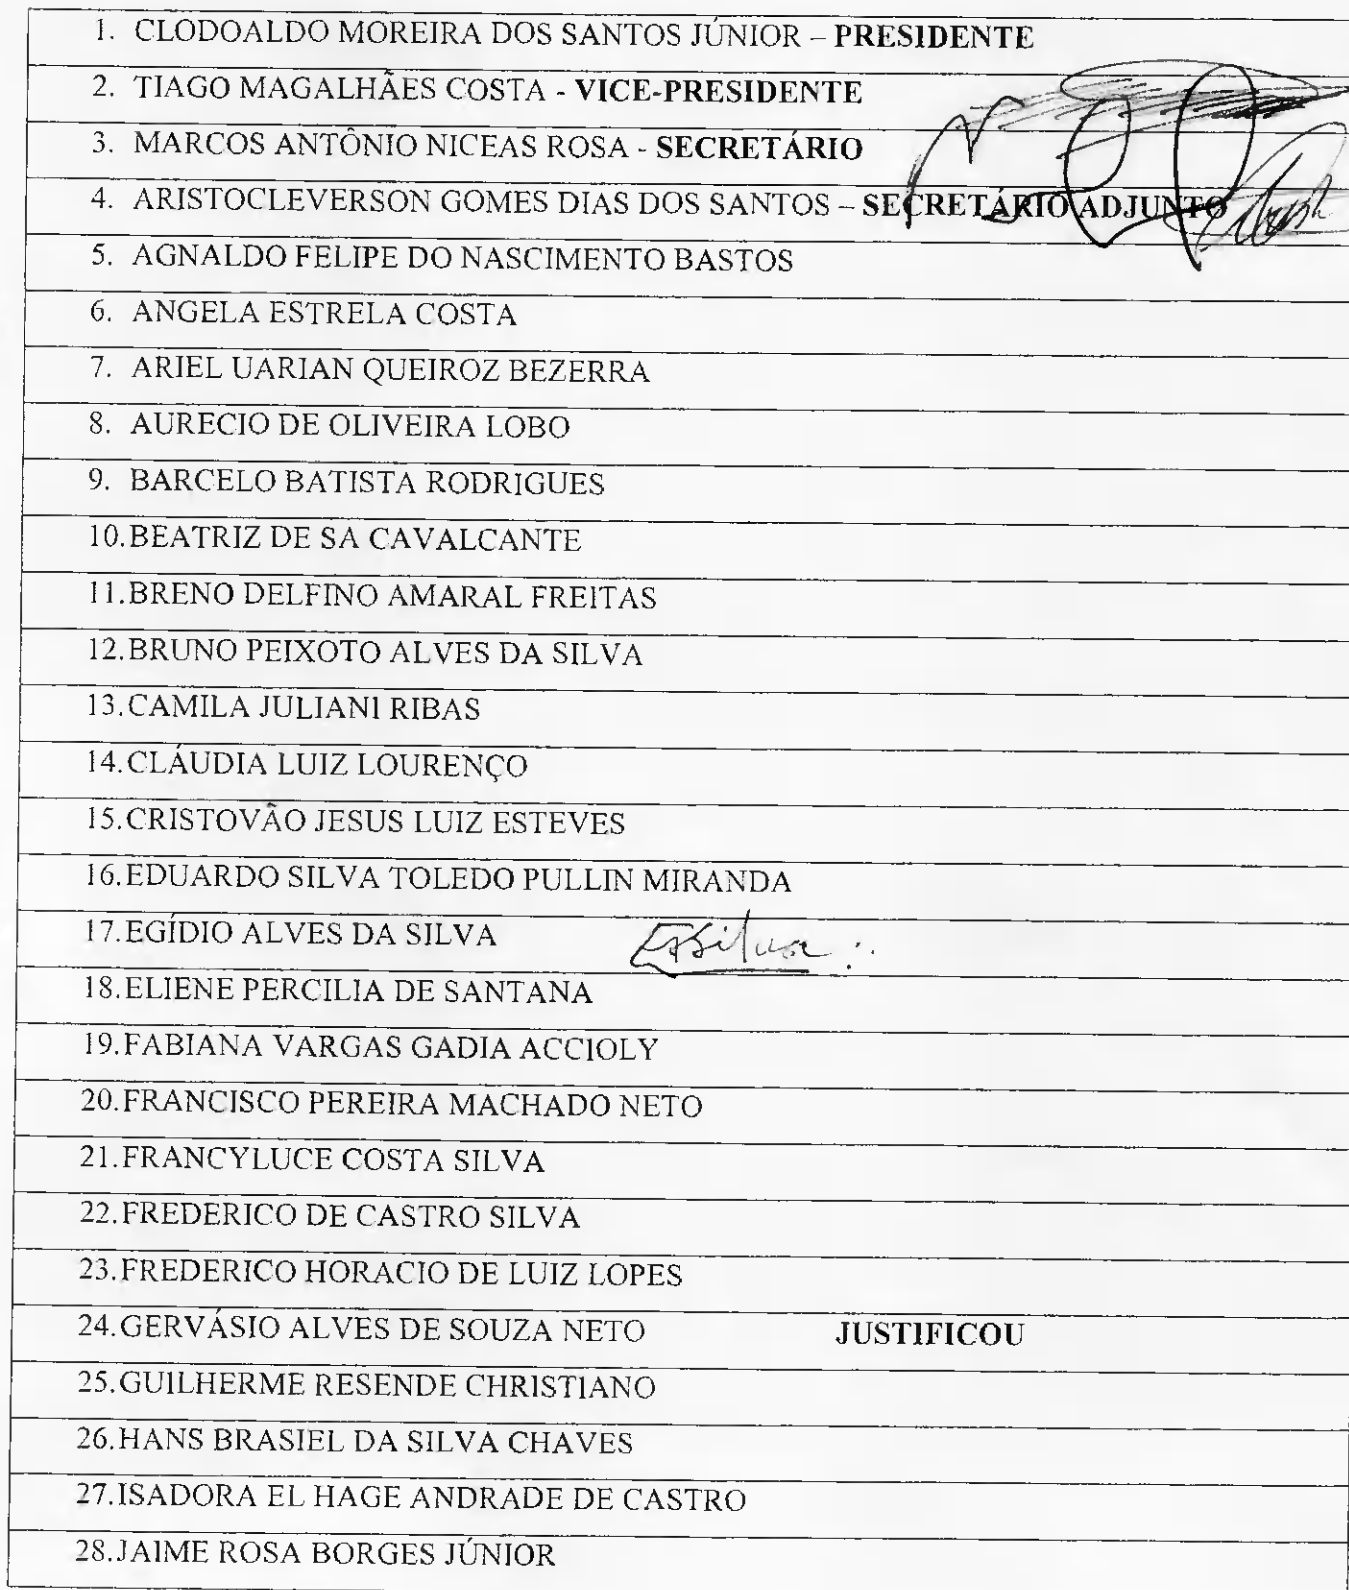 1. CLODOALDO MOREIRA DOS SANTOS JÚNIOR – PRESIDENTE
2. TIAGO MAGALHÃES COSTA - VICE-PRESIDENTE
3. MARCOS ANTÔNIO NICEAS ROSA - SECRETÁRIO
4. ARISTOCLEVERSON GOMES DIAS DOS SANTOS – SECRETÁRIO ADJUNTO
5. AGNALDO FELIPE DO NASCIMENTO BASTOS
6. ANGELA ESTRELA COSTA
7. ARIEL UARIAN QUEIROZ BEZERRA
8. AURECIO DE OLIVEIRA LOBO
9. BARCELO BATISTA RODRIGUES
10.BEATRIZ DE SA CAVALCANTE
11.BRENO DELFINO AMARAL FREITAS
12.BRUNO PEIXOTO ALVES DA SILVA
13.CAMILA JULIANI RIBAS
14.CLÁUDIA LUIZ LOURENÇO
15.CRISTOVÃO JESUS LUIZ ESTEVES
16.EDUARDO SILVA TOLEDO PULLIN MIRANDA
17.EGÍDIO ALVES DA SILVA
18.ELIENE PERCILIA DE SANTANA
19.FABIANA VARGAS GADIA ACCIOLY
20.FRANCISCO PEREIRA MACHADO NETO
21.FRANCYLUCE COSTA SILVA
22.FREDERICO DE CASTRO SILVA
23.FREDERICO HORACIO DE LUIZ LOPES
24.GERVÁSIO ALVES DE SOUZA NETO JUSTIFICOU
25.GUILHERME RESENDE CHRISTIANO
26.HANS BRASIEL DA SILVA CHAVES
27.ISADORA EL HAGE ANDRADE DE CASTRO
28.JAIME ROSA BORGES JÚNIOR